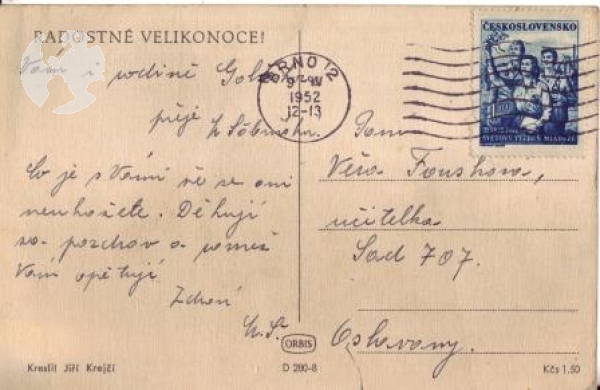 RADOSTNÉ VELIKONOCE!
Vám i rodině
přeje
Co je s Vámi že se ani
neukážete. Děkuji
za pozdrav a
Vám opětuji
Zdraví
Kreslil Jiří Krejčí
BRNO 12
1952
12-13
ČESKOSLOVENSKO
SVĚTOVÝ TÝDEN MLÁDEŽE
Věra
učitelka
Sad 707.
Oslavany.
ORBIS
D 280-8
Kčs 1.50